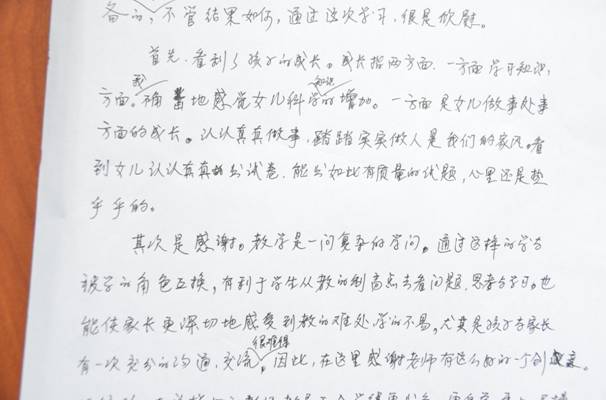 备的，不管结果如何，通过这次学习，很是欣慰。
首先，看到了孩子的成长。成长指两方面，一方面学习知识，
方面。我确当地感觉女儿科学知识的增加。一方面是女儿做事处事
方面的成长。认认真真做事，踏踏实实做人是我们的家风。看
到女儿认认真真出试卷，能出如此有质量的优题，心里还是热
乎乎的。
其次是感谢。教学是一门复杂的学问。通过这样的学与
被学的角色互换，有利于学生从教的制高点去看问题、思考与学习。也
能使家长更深切地感受到教的难处，学的不易，尤其是孩子与家长
有一次充分的沟通，交流，很难得。因此，在这里感谢老师有这么好的一个创意。